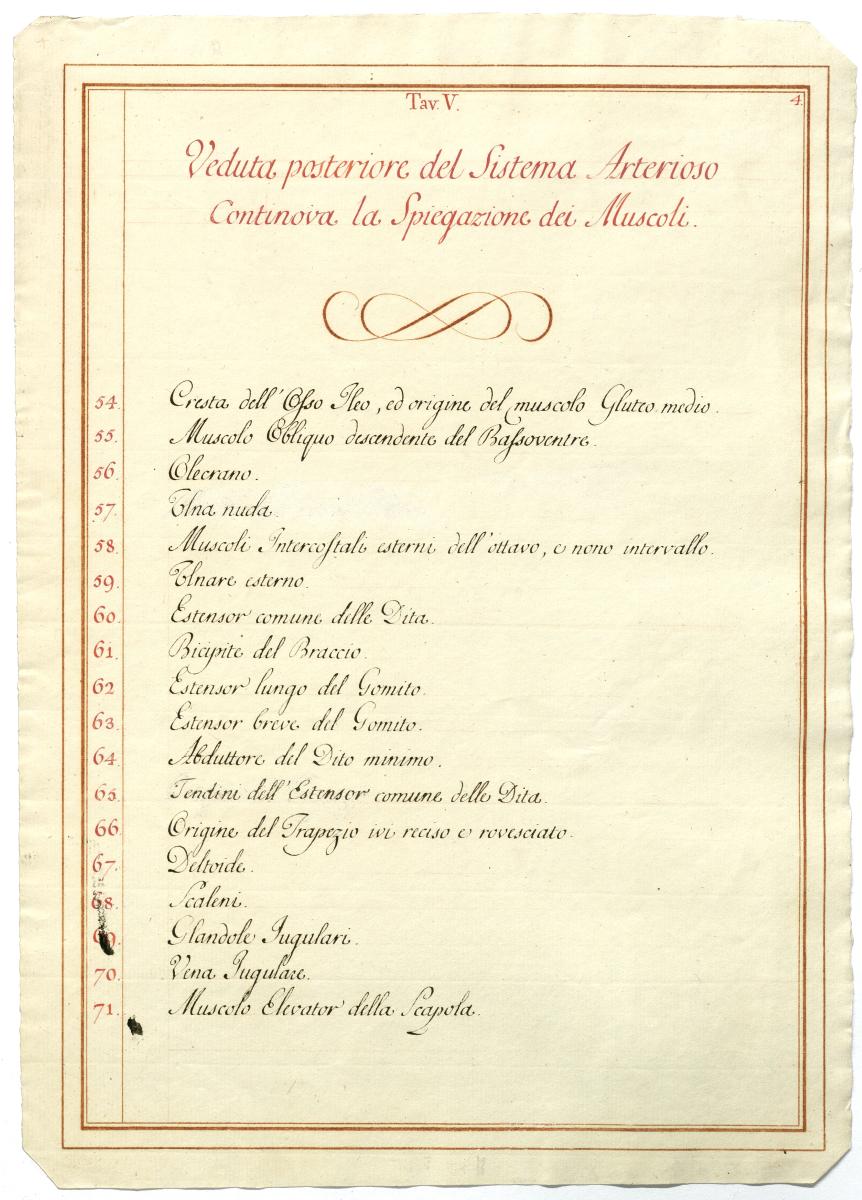 Tav. V.
4.
Veduta posteriore del Sistema Arterioso
Continova la Spiegazione dei Muscoli.
54. Cresta dell'Osso Ileo, ed origine del muscolo Gluteo medio.
55. Muscolo Obliquo descendente del Baſsoventre.
56. Olecrano.
57. Ulna nuda.
58. Muscoli Intercoſtali esterni dell'ottavo, e nono intervallo.
59. Ulnare esterno.
60. Estensor comune delle Dita.
61. Bicipite del Braccio.
62 Estensor lungo del Gomito.
63. Estensor breve del Gomito.
64. Abduttore del Dito minimo.
65. Tendini dell'Estensor comune delle Dita.
66. Origine del Trapezio ivi reciso e rovesciato.
67. Deltoide.
68. Scaleni.
69. Glandole Jugulari.
70. Vena Jugulare.
71. Muscolo Elevator della Scapola.